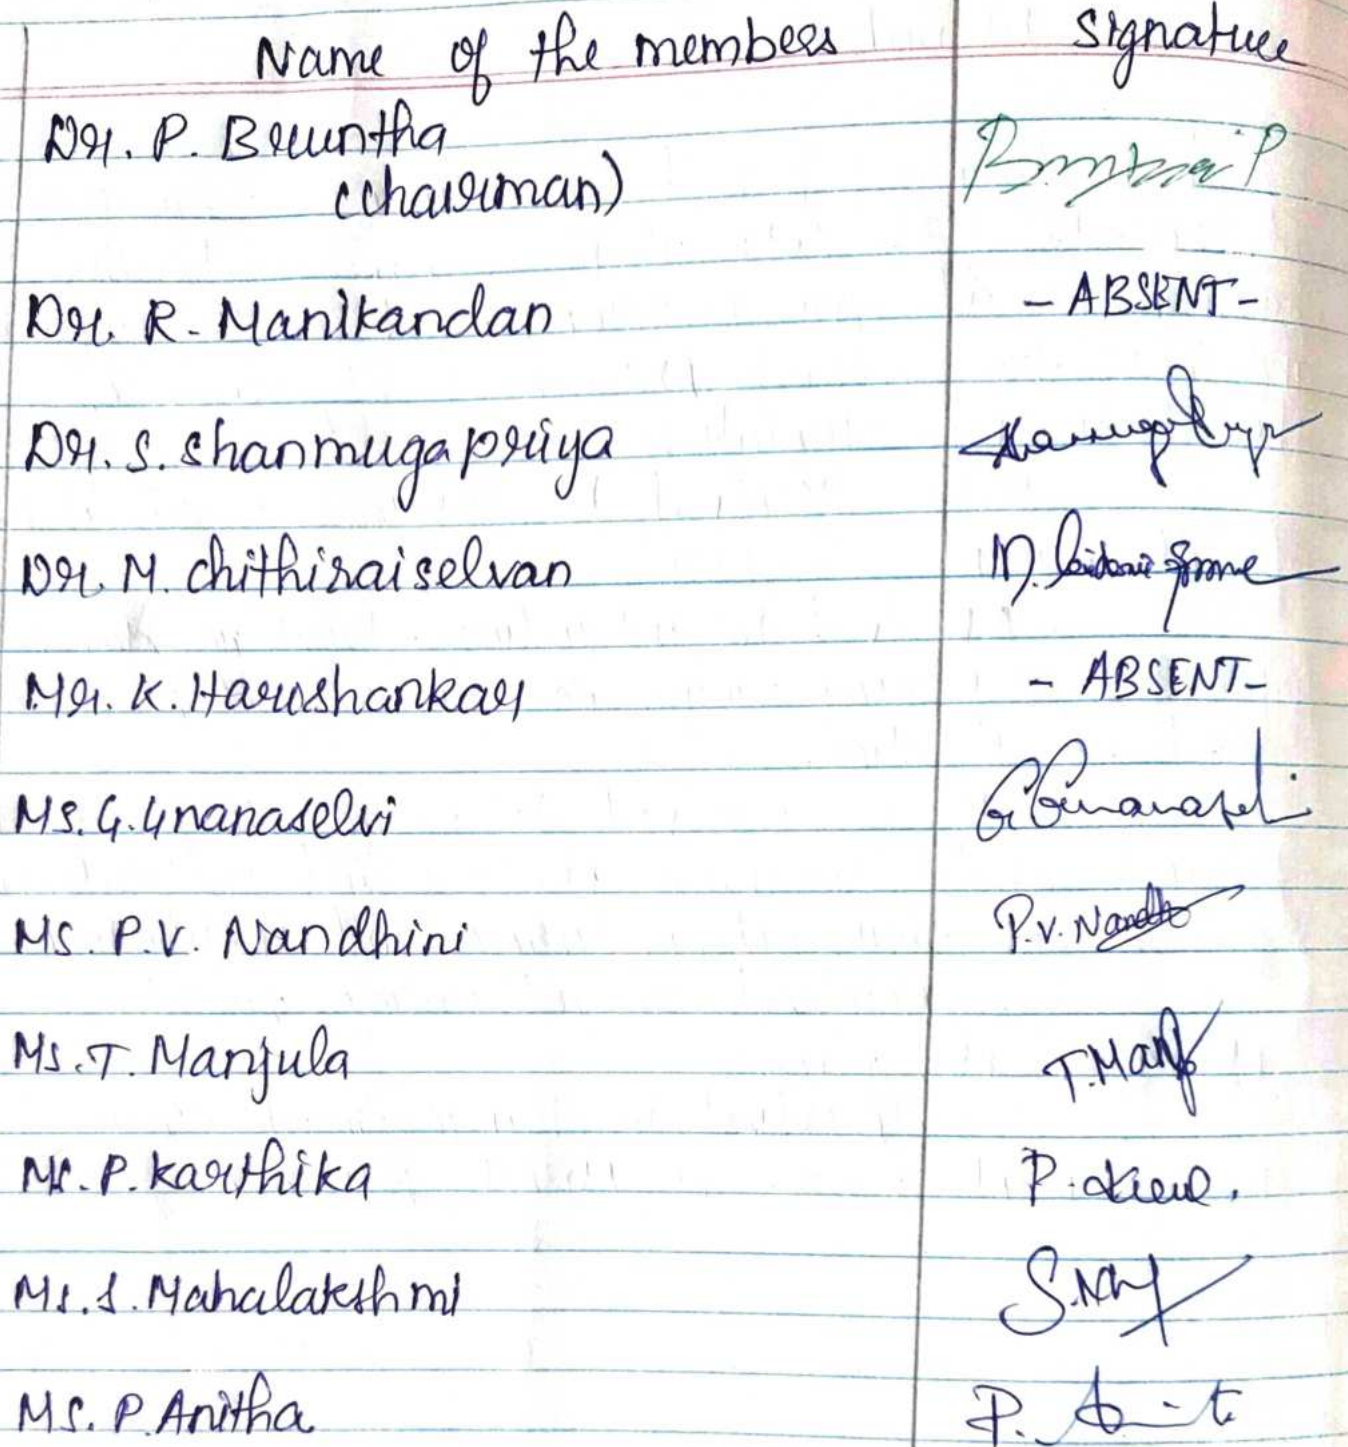 Name of the members Signature
Dr. P. Bruntha
(chairman)
Dr. R. Manikandan - ABSENT -
Dr. S. Shanmugapriya
Dr. M. chithiraiselvan
Mr. K. Harishankar - ABSENT -
Ms. G. Gnanaselvi G. Gnanaselvi
Ms. P.V. Nandhini P.V. Nandh
Ms. T. Manjula T. Manj
Ms. P. Karthika P.
Ms. S. Mahalakshmi
Ms. P. Anitha P.